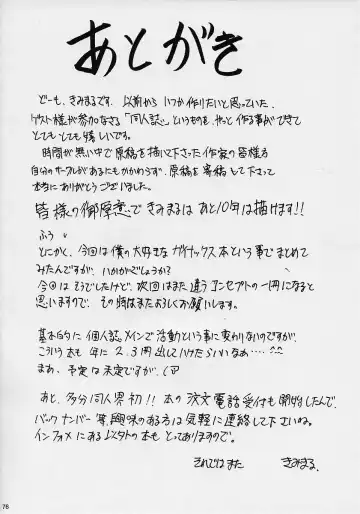 あとがき
どーも、きみまるです。以前から いつか作りたいと思っていた、
ゲスト様が参加なさる「同人誌」というものを、やっと作る事ができて
とてもとても嬉しいです。
時間が無い中で原稿を描いて下さった作家の皆様方
自分のサークルがあるにもかかわらず、原稿を寄稿して下さって
本当にありがとうございました。
皆様の御厚意で きみまるは あと10年は描けます!!
ふう
とにかく、今回は僕の大好きなガイナックス本という事でまとめて
みたんですが、いかがでしょうか?
今回はそうでしたけど、次回はまた違うコンセプトの一冊になると
思いますので、その時はまたよろしくお願いします。
基本的に 個人誌メインで活動という事に変わりないのですが、
こういう本も 年に 2、3冊出していけたらいいなあ…^^
まあ、予定は未定ですが。
あと、多分同人界初!! 本の注文電話受付も開始したんで、
バックナンバー等、興味のある方は気軽に連絡して下さいね。
インフォメにある以外の本も とってありますので。
それではまた きみまる
78